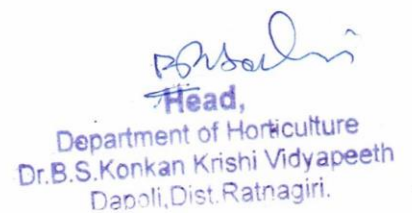 Head,
Department of Horticulture
Dr.B.S.Konkan Krishi Vidyapeeth
Dapoli,Dist.Ratnagiri.